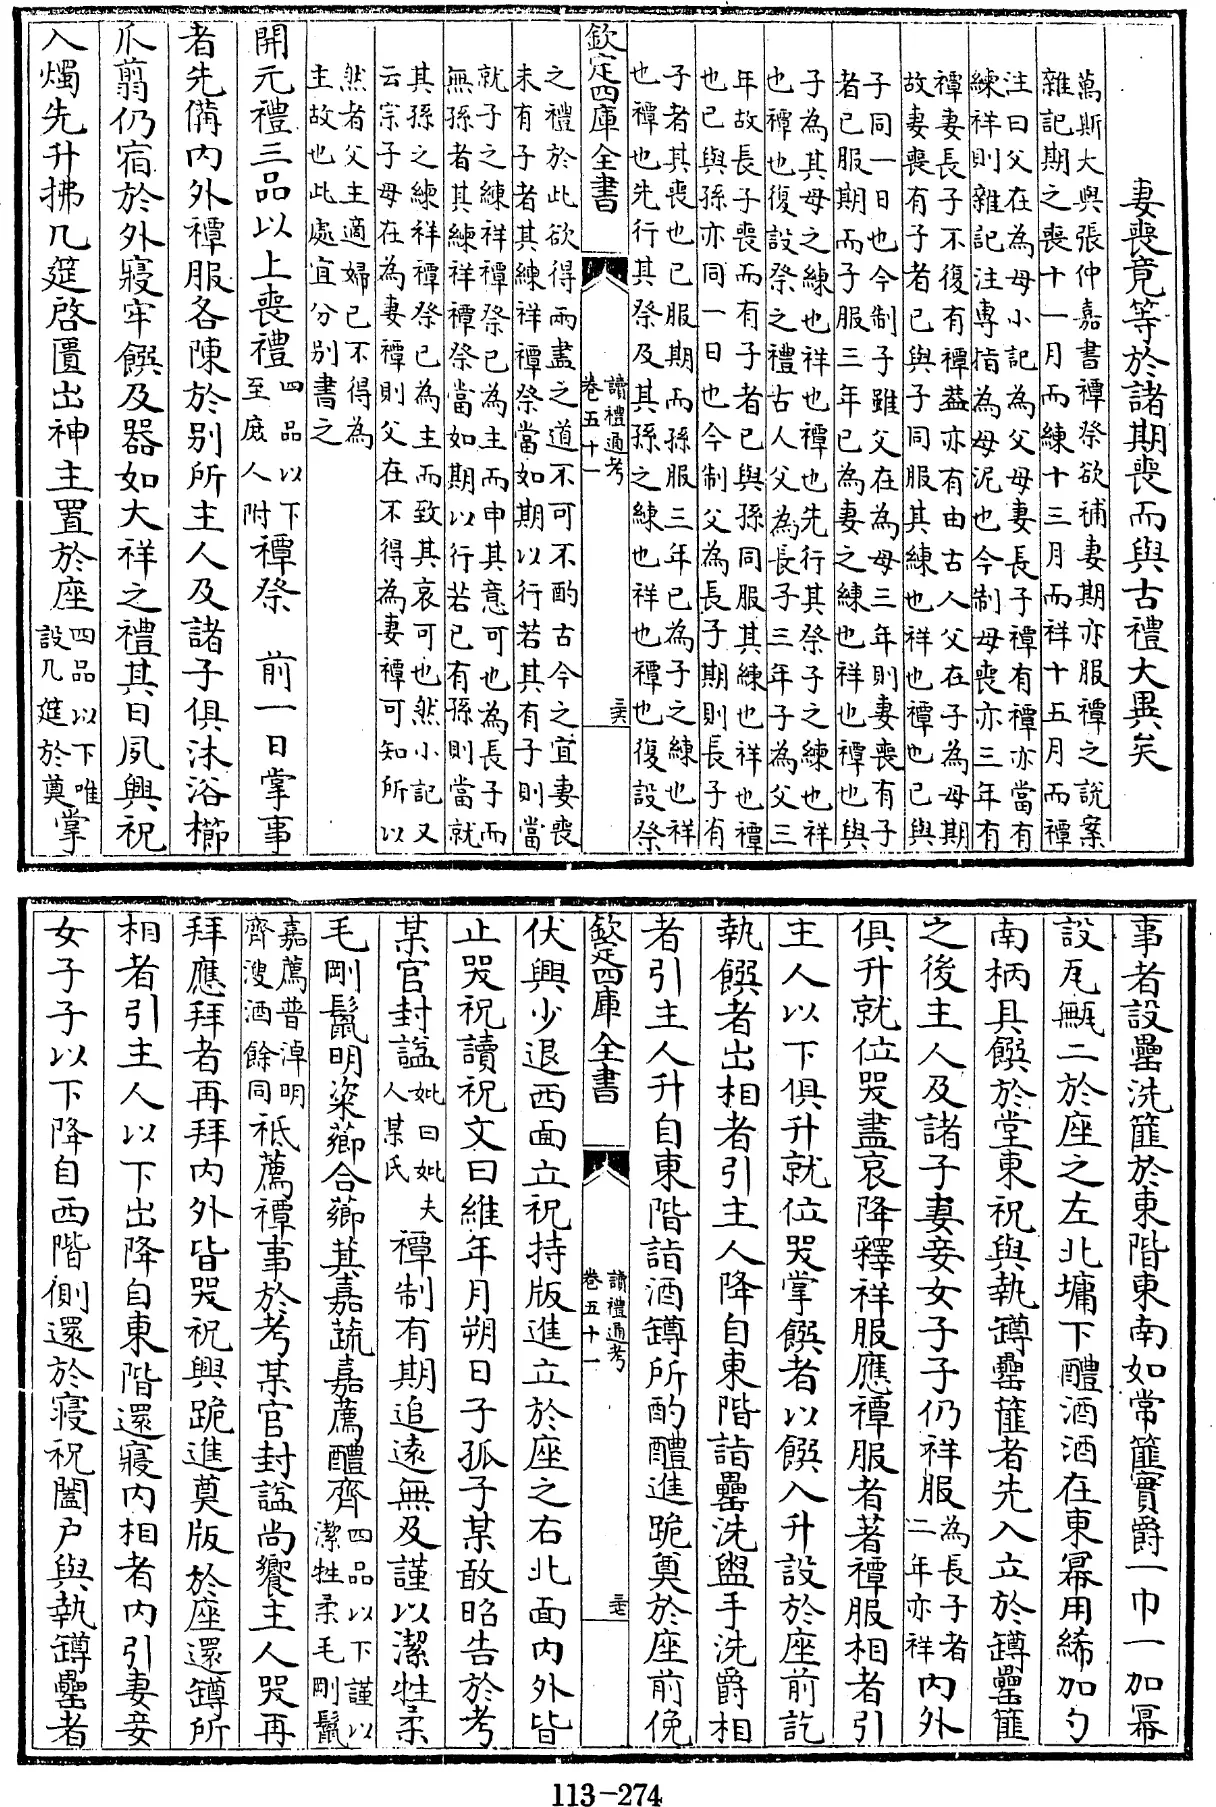 妻喪竟等於諸期喪而與古禮大異矣
萬斯大與張仲嘉書禫祭欲補妻期亦服禫之說案
雜記期之喪十一月而練十三月而祥十五月而禫
注曰父在為母小記為父母妻長子禫有禫亦當有
練祥則雜記注專指為母泥也今制母喪亦三年有
禫妻長子不復有禫葢亦有由古人父在子為母期
故妻喪有子者已與子同服其練也祥也禫也已與
子同一日也今制子雖父在為母三年則妻喪有子
者已服期而子服三年已為妻之練也祥也禫也與
子為其母之練也祥也禫也先行其祭子之練也祥
也禫也復設祭之禮古人父為長子三年子為父三
年故長子喪而有子者已與孫同服其練也祥也禫
也已與孫亦同一日也今制父為長子期則長子有
子者其喪也已服期而孫服三年已為子之練也祥
也禫也先行其祭及其孫之練也祥也禫也復設祭
欽定四庫全書
讀禮通考
卷五十一
之禮於此欲得兩盡之道不可不酌古今之宜妻喪
未有子者其練祥禫祭當如期以行若其有子則當
就子之練祥禫祭已為主而申其意可也為長子而
無孫者其練祥禫祭當如期以行若已有孫則當就
其孫之練祥禫祭已為主而致其哀可也然小記又
云宗子母在為妻禫則父在不得為妻禫可知所以
然者父主適婦已不得為
主故也此處宜分别書之
開元禮三品以上喪禮四品以下至庶人附禫祭　前一日掌事
者先備内外禫服各陳於别所主人及諸子俱沐浴櫛
爪翦仍宿於外寢牢饌及器如大祥之禮其日夙興祝
入燭先升拂几筵啓匱出神主置於座四品以下唯設几筵於奠掌
事者設罍洗篚於東階東南如常篚實爵一巾一加冪
設瓦甒二於座之左北墉下醴酒酒在東冪用綌加勺
南柄具饌於堂東祝與執罇罍篚者先入立於罇罍篚
之後主人及諸子妻妾女子子仍祥服為長子者二年亦祥内外
俱升就位哭盡哀降釋祥服應禫服者著禫服相者引
主人以下俱升就位哭掌饌者以饌入升設於座前訖
執饌者出相者引主人降自東階詣罍洗盥手洗爵相
者引主人升自東階詣酒罇所酌醴進跪奠於座前俛
欽定四庫全書
讀禮通考
卷五十一
伏興少退西面立祝持版進立於座之右北面内外皆
止哭祝讀祝文曰維年月朔日子孤子某敢昭告於考
某官封諡妣曰妣夫人某氏禫制有期追遠無及謹以潔牲柔
毛剛鬛明粢薌合薌萁嘉蔬嘉薦醴齊四品以下謹以潔牲柔毛剛鬛
嘉薦普淖明齊溲酒餘同祗薦禫事於考某官封諡尚饗主人哭再
拜應拜者再拜内外皆哭祝興跪進奠版於座還罇所
相者引主人以下出降自東階還寢内相者内引妻妾
女子子以下降自西階側還於寢祝闔户與執罇罍者
113-274